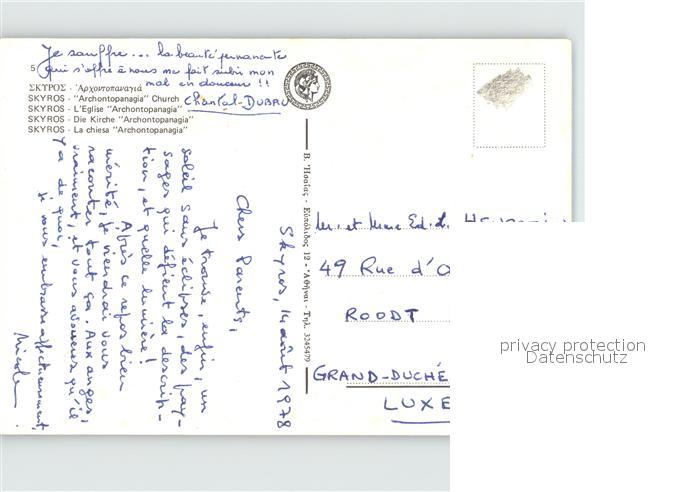 Je souffre... la beauté permanente
qui s'offre à nous me fait subir mon
mal en douceur !!
Chantal-DUBRU
5
ΣΚΥΡΟΣ - Ἀρχοντοπαναγιά
SKYROS - "Archontopanagia" Church
SKYROS - L'Eglise "Archontopanagia"
SKYROS - Die Kirche "Archontopanagia"
SKYROS - La chiesa "Archontopanagia"
Skyros, 14 août 1978
Chers Parents,
Je trouve, enfin, un
soleil sans éclipses, des pay-
sages qui défient la descrip-
tion, et quelle lumière !
Après ce repos bien
mérité, je viendrai vous
raconter tout ça. Aux anges,
vraiment, et vous avouerez qu'il
y a de quoi,
je vous embrasse affectueusement,
Nicole.
Β. Ἡσαΐας - Εὐπόλιδος 12 - Ἀθῆναι - Τηλ. 3245479
M. et Mme Ed. L.
49 Rue d'O
ROODT
GRAND-DUCHÉ
LUXE
privacy protection
Datenschutz